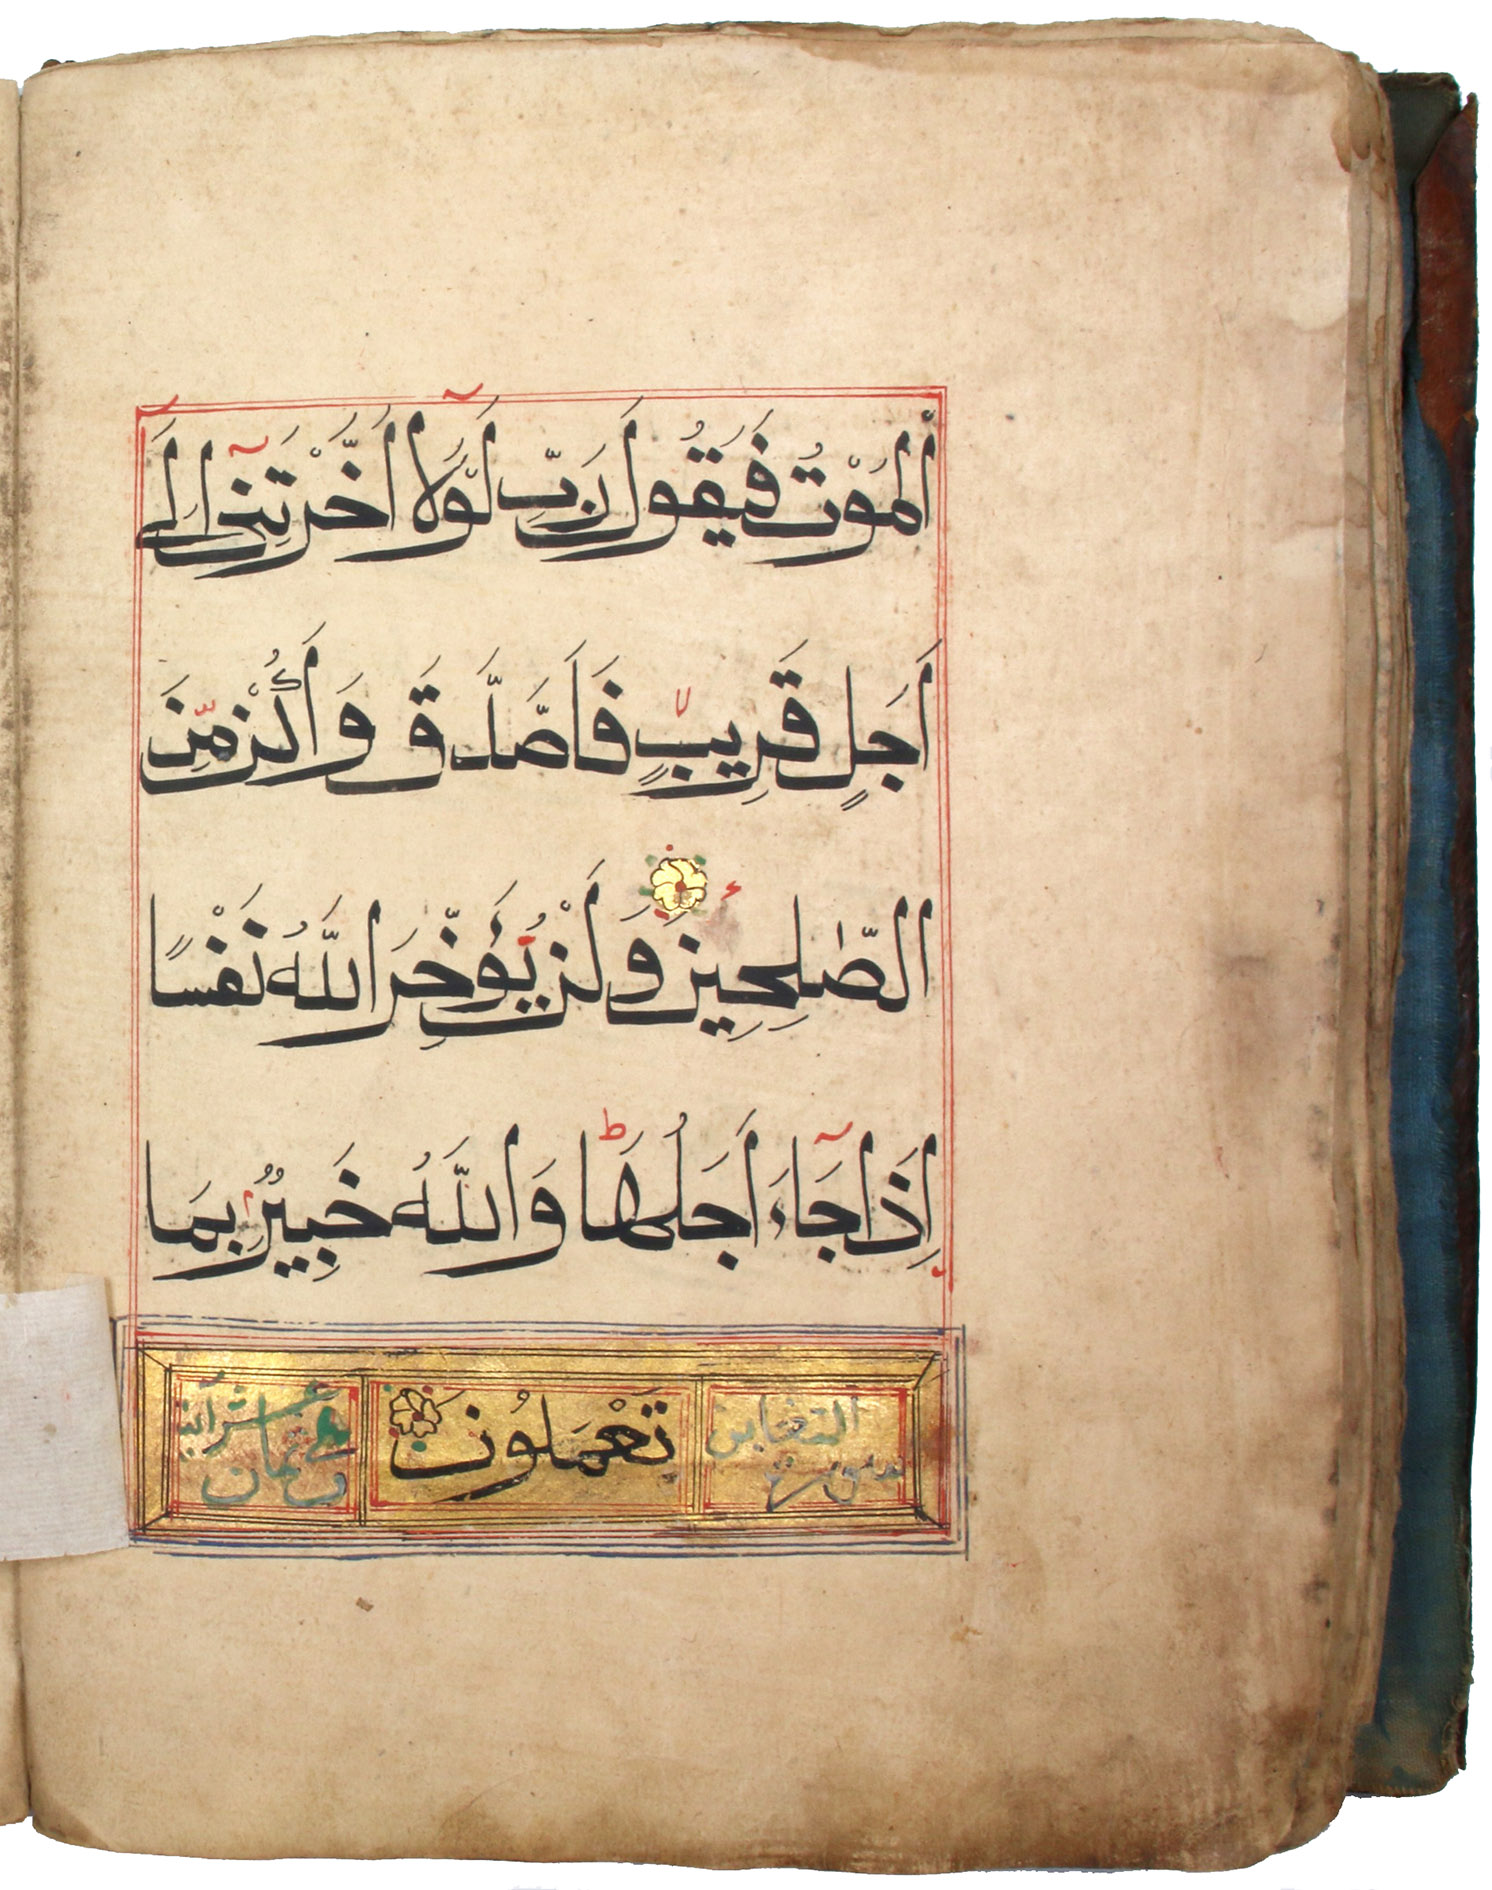 الْمَوْتُ فَيَقُولَ رَبِّ لَوْلَا أَخَّرْتَنِي إِلَىٰ
أَجَلٍ قَرِيبٍ فَأَصَّدَّقَ وَأَكُنْ مِّنَ
الصّٰلِحِينَ وَلَنْ يُؤَخِّرَ اللَّهُ نَفْسًا
إِذَا جَاءَ أَجَلُهَا ط وَاللَّهُ خَبِيرٌ بِمَا
تَعْمَلُونَ
سورة التغابن
ثمان عشر آية